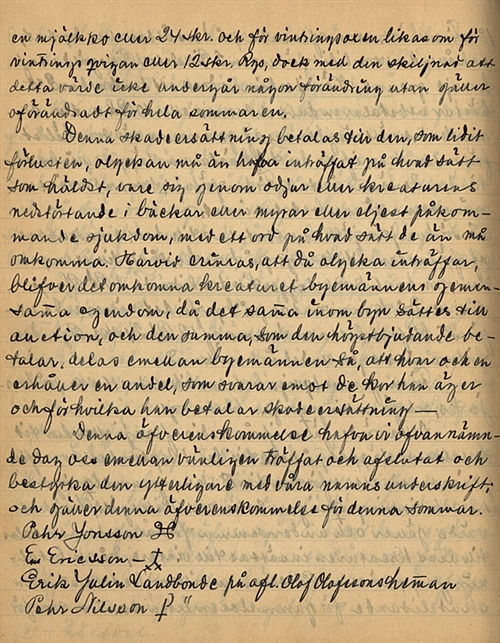 en mjölkko eller 24 skr. och för vintringsoxen likasom för
vintrings qvigan eller 12 skr. Rgs, dock med den skiljnad att
detta värde icke undergår någon förändring utan gäller
oförändradt för hela sommaren.
Denna skadeersättning betalas till den, som lidit
förlusten, olyckan må än hafva inträffat på hvad sätt
som häldst, vare sig genom odjur eller kreaturens
nedstörtande i bäckar eller myrar eller eljest påkom-
mande sjukdom, med ett ord på hvad sätt de än må
omkomma. Härvid erinras, att då olycka inträffar,
blifver det omkomna kreaturet byemännens gemen-
samma egendom, då det samma inom byn sättes till
auction, och den summa, som den högstbjudande be-
talar, delas emellan byemännen så, att hvar och en
erhåller en andel, som svarar emot de kor han äger
och för hvilka han betalar skadeersättning —
Denna öfverenskommelse hafva vi ofvannämn-
de dag oss emellan vänligen träffat och afslutat och
bestyrka den ytterligare med våra namns underskrift,
och gäller denna öfverenskommelse för denna sommar.
Pehr Jonsson
Er Ericsson —
Erik Julin Landbonde på afl. Olof Olofssons hemman
Pehr Nilsson